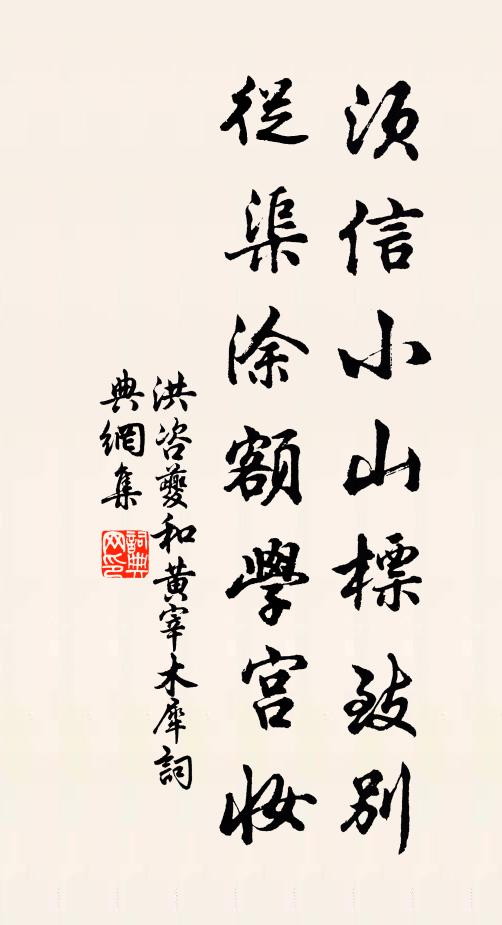 須信小山標致別
從渠涂額學宮妝
洪咨夔和黃宰木犀詞
典網集
詞典网印